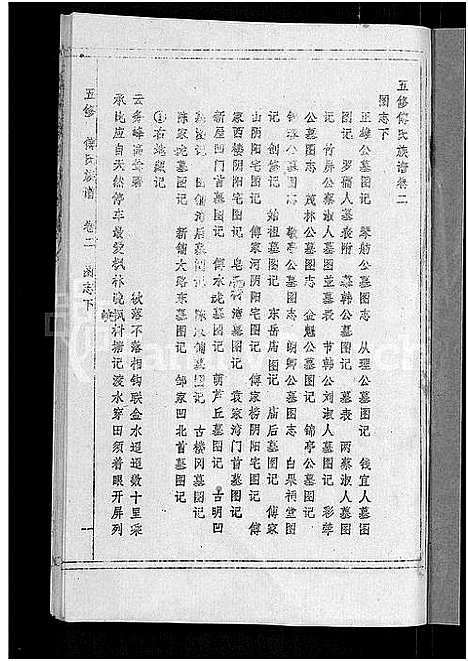 五修傅氏族谱卷二
图志下
正雄公墓图记 琴舫公墓图志 从理公墓图记 钱宜人墓图
图记 罗孺人墓表附 慕韩公墓图记 墓表 两蔡淑人墓图
记 竹屏公蔡淑人墓图并墓表 节韩公刘淑人墓图记 彩蓉
公墓图志 茂林公墓图志 金魁公墓图记 锦亭公墓图记
公墓图记 敬亭公墓图志 朗卿公墓图志 白果祠堂图
记 创修记 始祖墓图记 东岳庙图记 庙后墓图记 傅家
山阴阳宅图记 傅家河阴阳宅图记 傅家榜阴阳宅图记 傅
家西楼阴阳宅图记 皂树湾墓图记 袁家湾门首墓图记
新屋凹门首墓图记 傅水垅墓图记 葫芦丘墓图记 古明凹
墓图记 铺湾后墓图记 铺墓图记 古楼冈墓图记
陈家垅墓图记 新铺大路东墓图记 邹家凹北首墓图记
①右地缀记
云务峰高峰 秋落不落相钩联金水迢迢数十里来
承比应自天然停车最爱枫林晚枫村塘记凌水穿田须着眼开屏列
五修 傅氏族谱 卷二 图志下 一